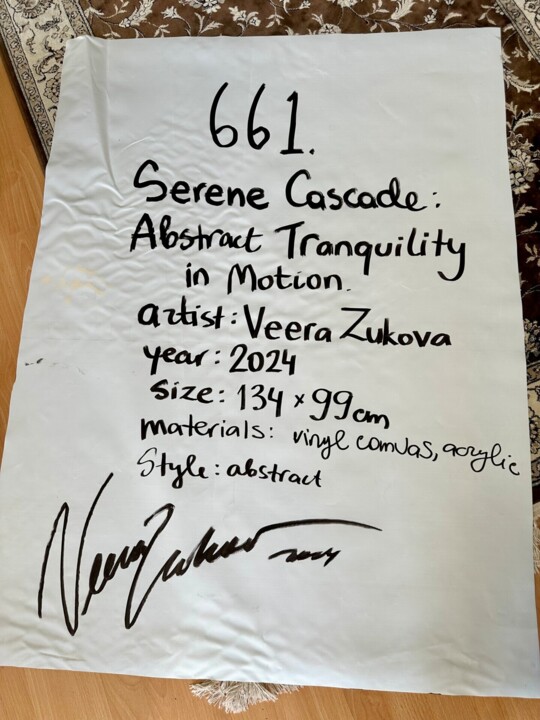 661.
Serene Cascade:
Abstract Tranquility
in Motion.
artist: Veera Zukova
year: 2024
size: 134 × 99 cm
materials: vinyl canvas, acrylic
Style: abstract
Veera Zukova 2024